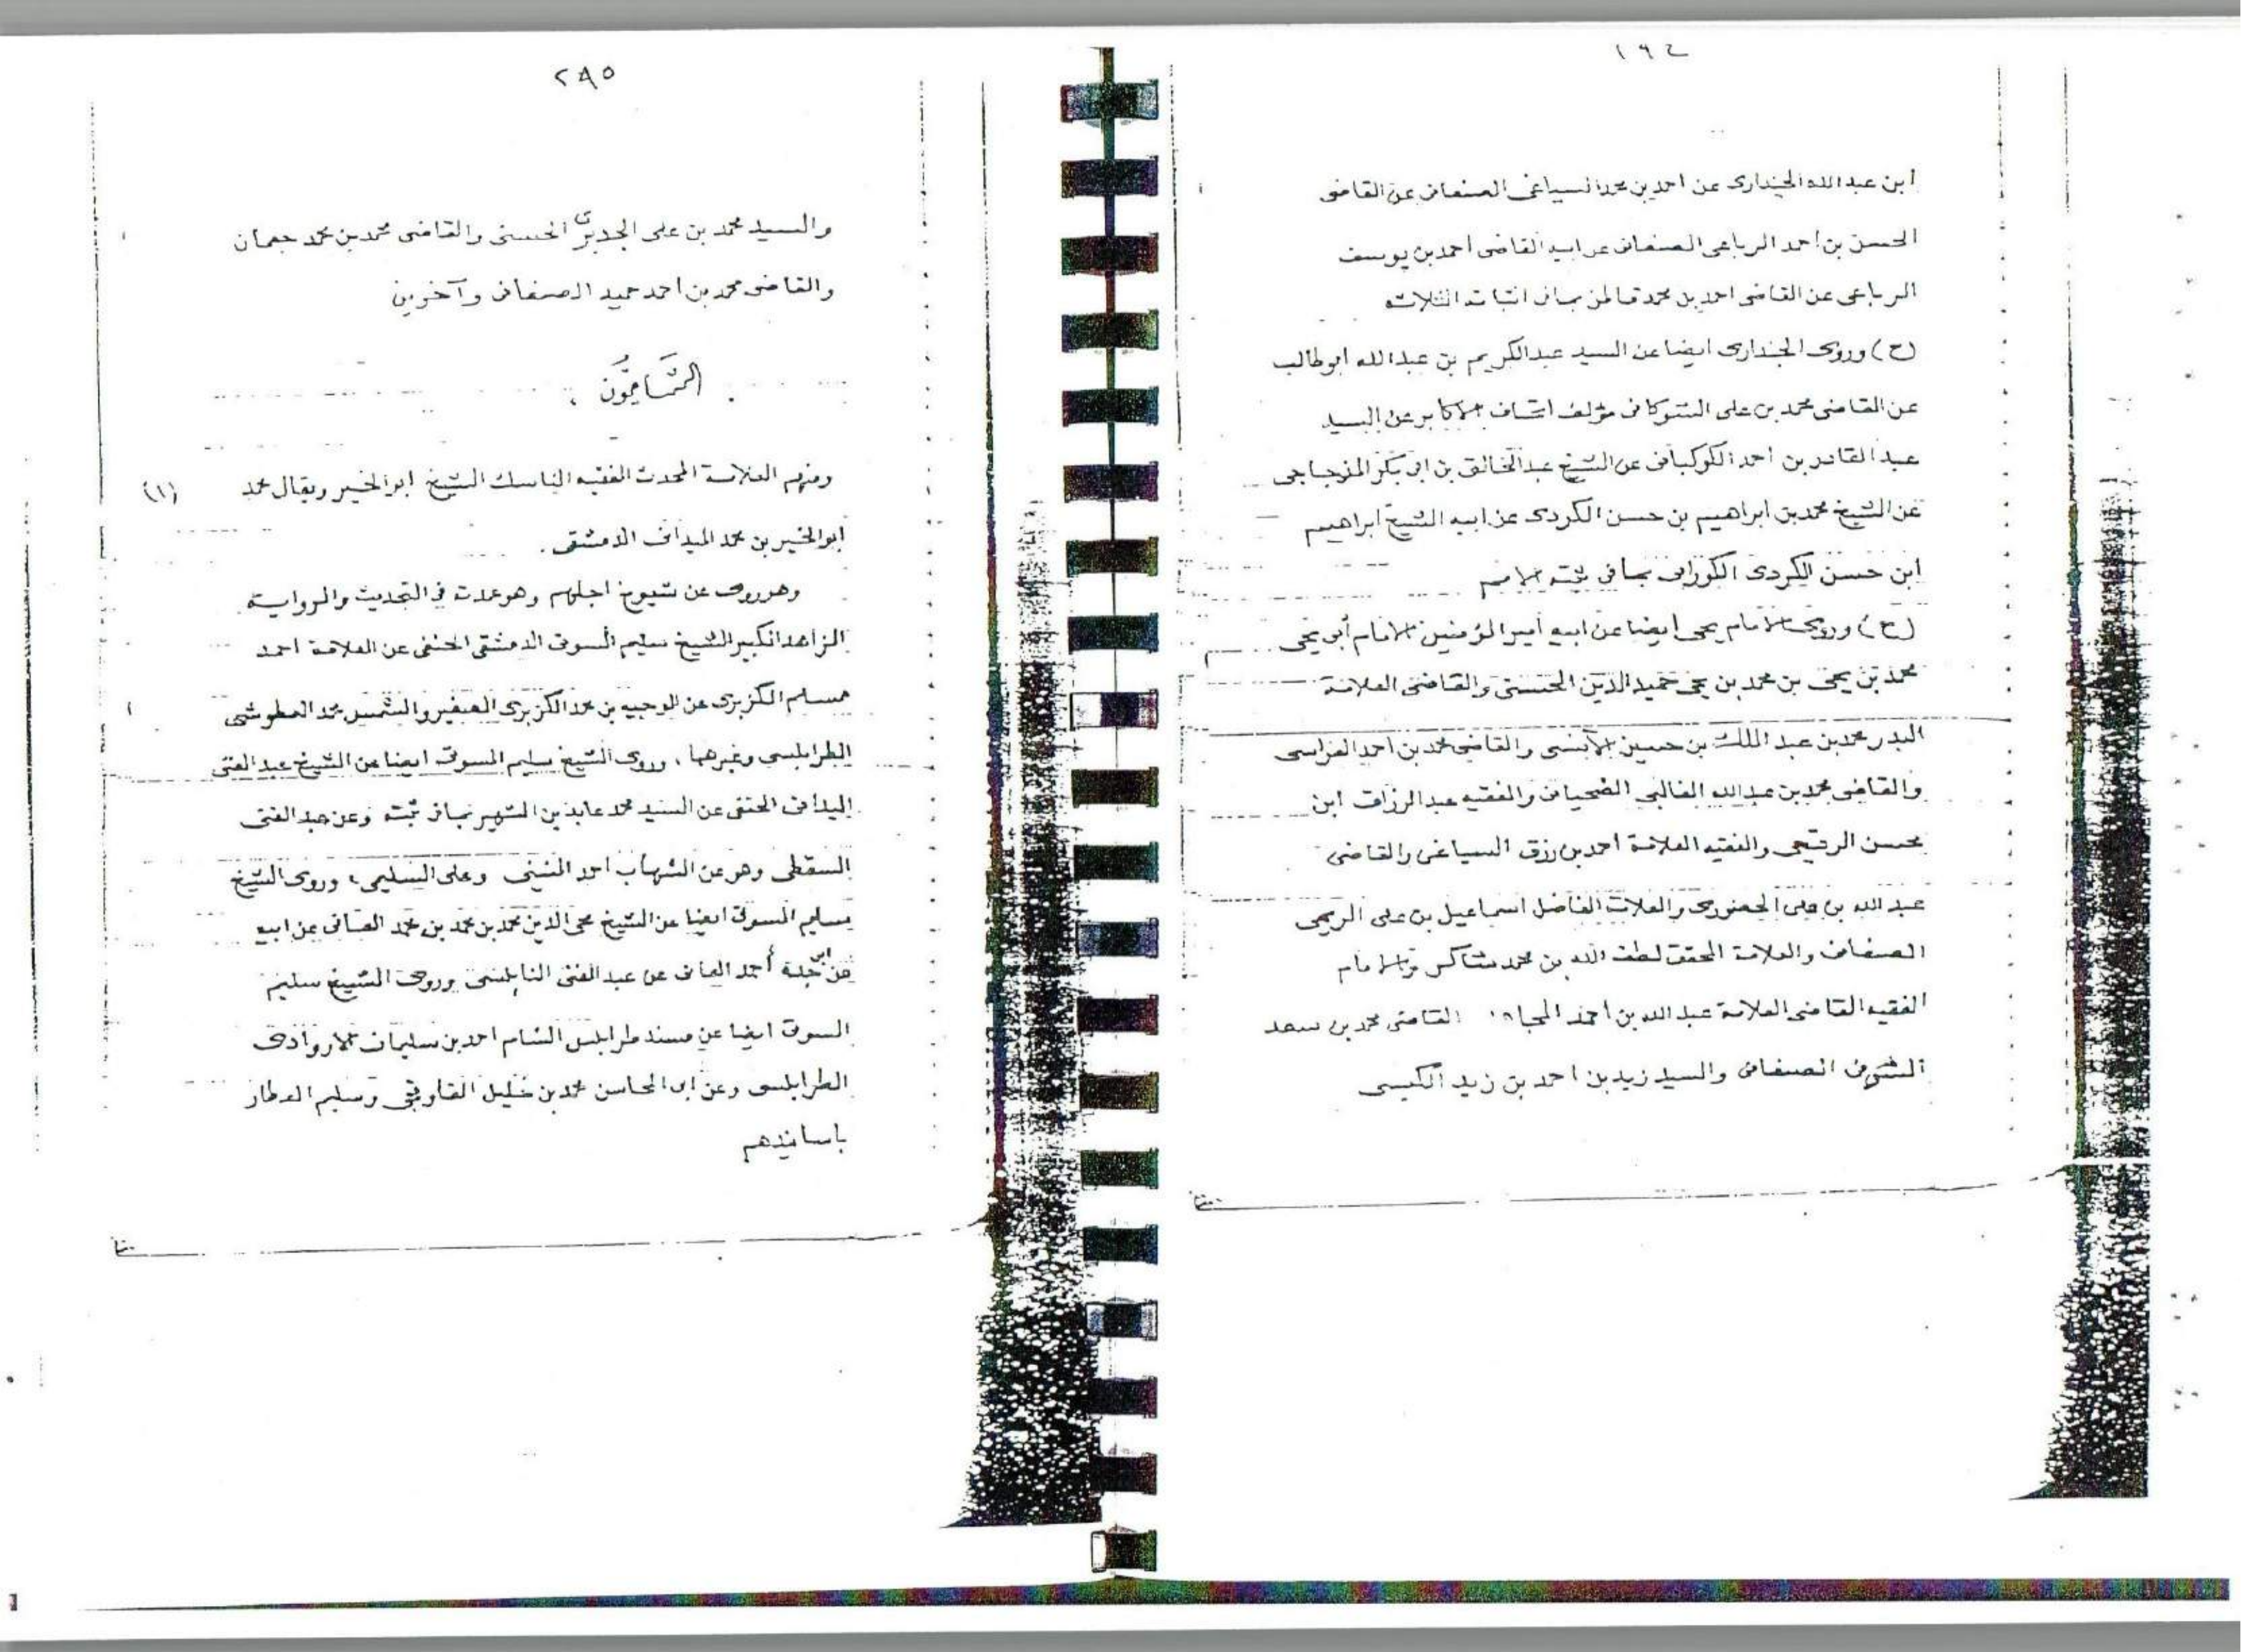 ٢٩٤
ابن عبدالله الجنداری عن احمد بن محمد السیاغی الصنعانی عن القاضی
الحسن بن احمد الرباعی الصنعانی عن ابیه القاضی أحمد بن یوسف
الرباعی عن القاضی احمد بن محمد قاطن بما فی اثباته الثلاثه
(ح) وروی الجنداری ایضا عن السید عبدالکریم بن عبدالله ابوطالب
عن القاضی محمد بن علی الشوکانی مؤلف اتحاف الاکابر عن السید
عبدالقادر بن احمد الکوکبانی عن الشیخ عبدالخالق بن ابی بکر المزجاجی
عن الشیخ محمد بن ابراهیم بن حسن الکردی عن ابیه الشیخ ابراهیم
ابن حسن الکردی الکورانی بما فی ثبته الامم
(ح) وروی الامام یحی ایضا عن ابیه أمیر المؤمنین الامام أبی یحی
محمد بن یحی بن محمد بن یحی حمیدالدین الحسنی والقاضی العلامة
البدر محمد بن عبدالملک بن حسین الآنسی والقاضی محمد بن احمد العراسی
والقاضی محمد بن عبدالله الغالبی الضحیانی والفقیه عبدالرزاق ابن
محسن الرقیحی والفقیه العلامة احمد بن رزق السیاغی والقاضی
عبدالله بن علی الحضوری والعلامة الفاضل اسماعیل بن علی الریمی
الصنعانی والعلامة المحقق لطف الله بن محمد شاکر والامام
الفقیه القاضی العلامة عبدالله بن أحمد المجاهد القاضی محمد بن سعد
الشرفی الصنعانی والسید زید بن احمد بن زید الکبسی
٢٩٥
والسید محمد بن علی الجدیری الحسنی والقاضی محمد بن محمد جغمان
والقاضی محمد بن احمد حمید الصنعانی وآخرین
الشامیُّون
ومنهم العلامة المحدث الفقیه الناسک الشیخ ابوالخیر ویقال محمد (١)
ابوالخیر بن محمد المیدانی الدمشقی .
وهو روی عن شیوخ اجلهم وهو عمدته فی التحدیث والروایة
الزاهد الکبیر الشیخ سلیم المسوتی الدمشقی الحنفی عن العلامة احمد
مسلم الکزبری عن الوجیه بن محمد الکزبری الصغیر والشمس محمد العطوشی
الطرابلسی وغیرهما، وروی الشیخ سلیم المسوتی ایضا عن الشیخ عبدالغنی
المیدانی الحنفی عن السید محمد عابدین الشهیر بما فی ثبته وعن عبدالغنی
السقطی وهو عن الشهاب احمد المنینی وعلی السلیمی، وروی الشیخ
سلیم المسوتی ایضا عن الشیخ محی الدین محمد بن محمد بن محمد العانی عن ابیه
عن ابی جده أحمد العانی عن عبدالغنی النابلسی وروی الشیخ سلیم
المسوتی ایضا عن مسند طرابلس الشام احمد بن سلیمان الاروادی
الطرابلسی وعن ابی المحاسن محمد بن خلیل القاوقجی وسلیم العطار
باسانیدهم